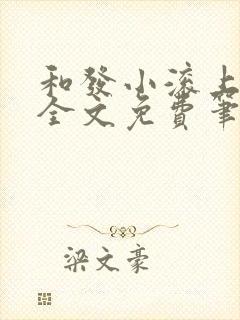 和發小滾上
全文免費筆
梁文豪